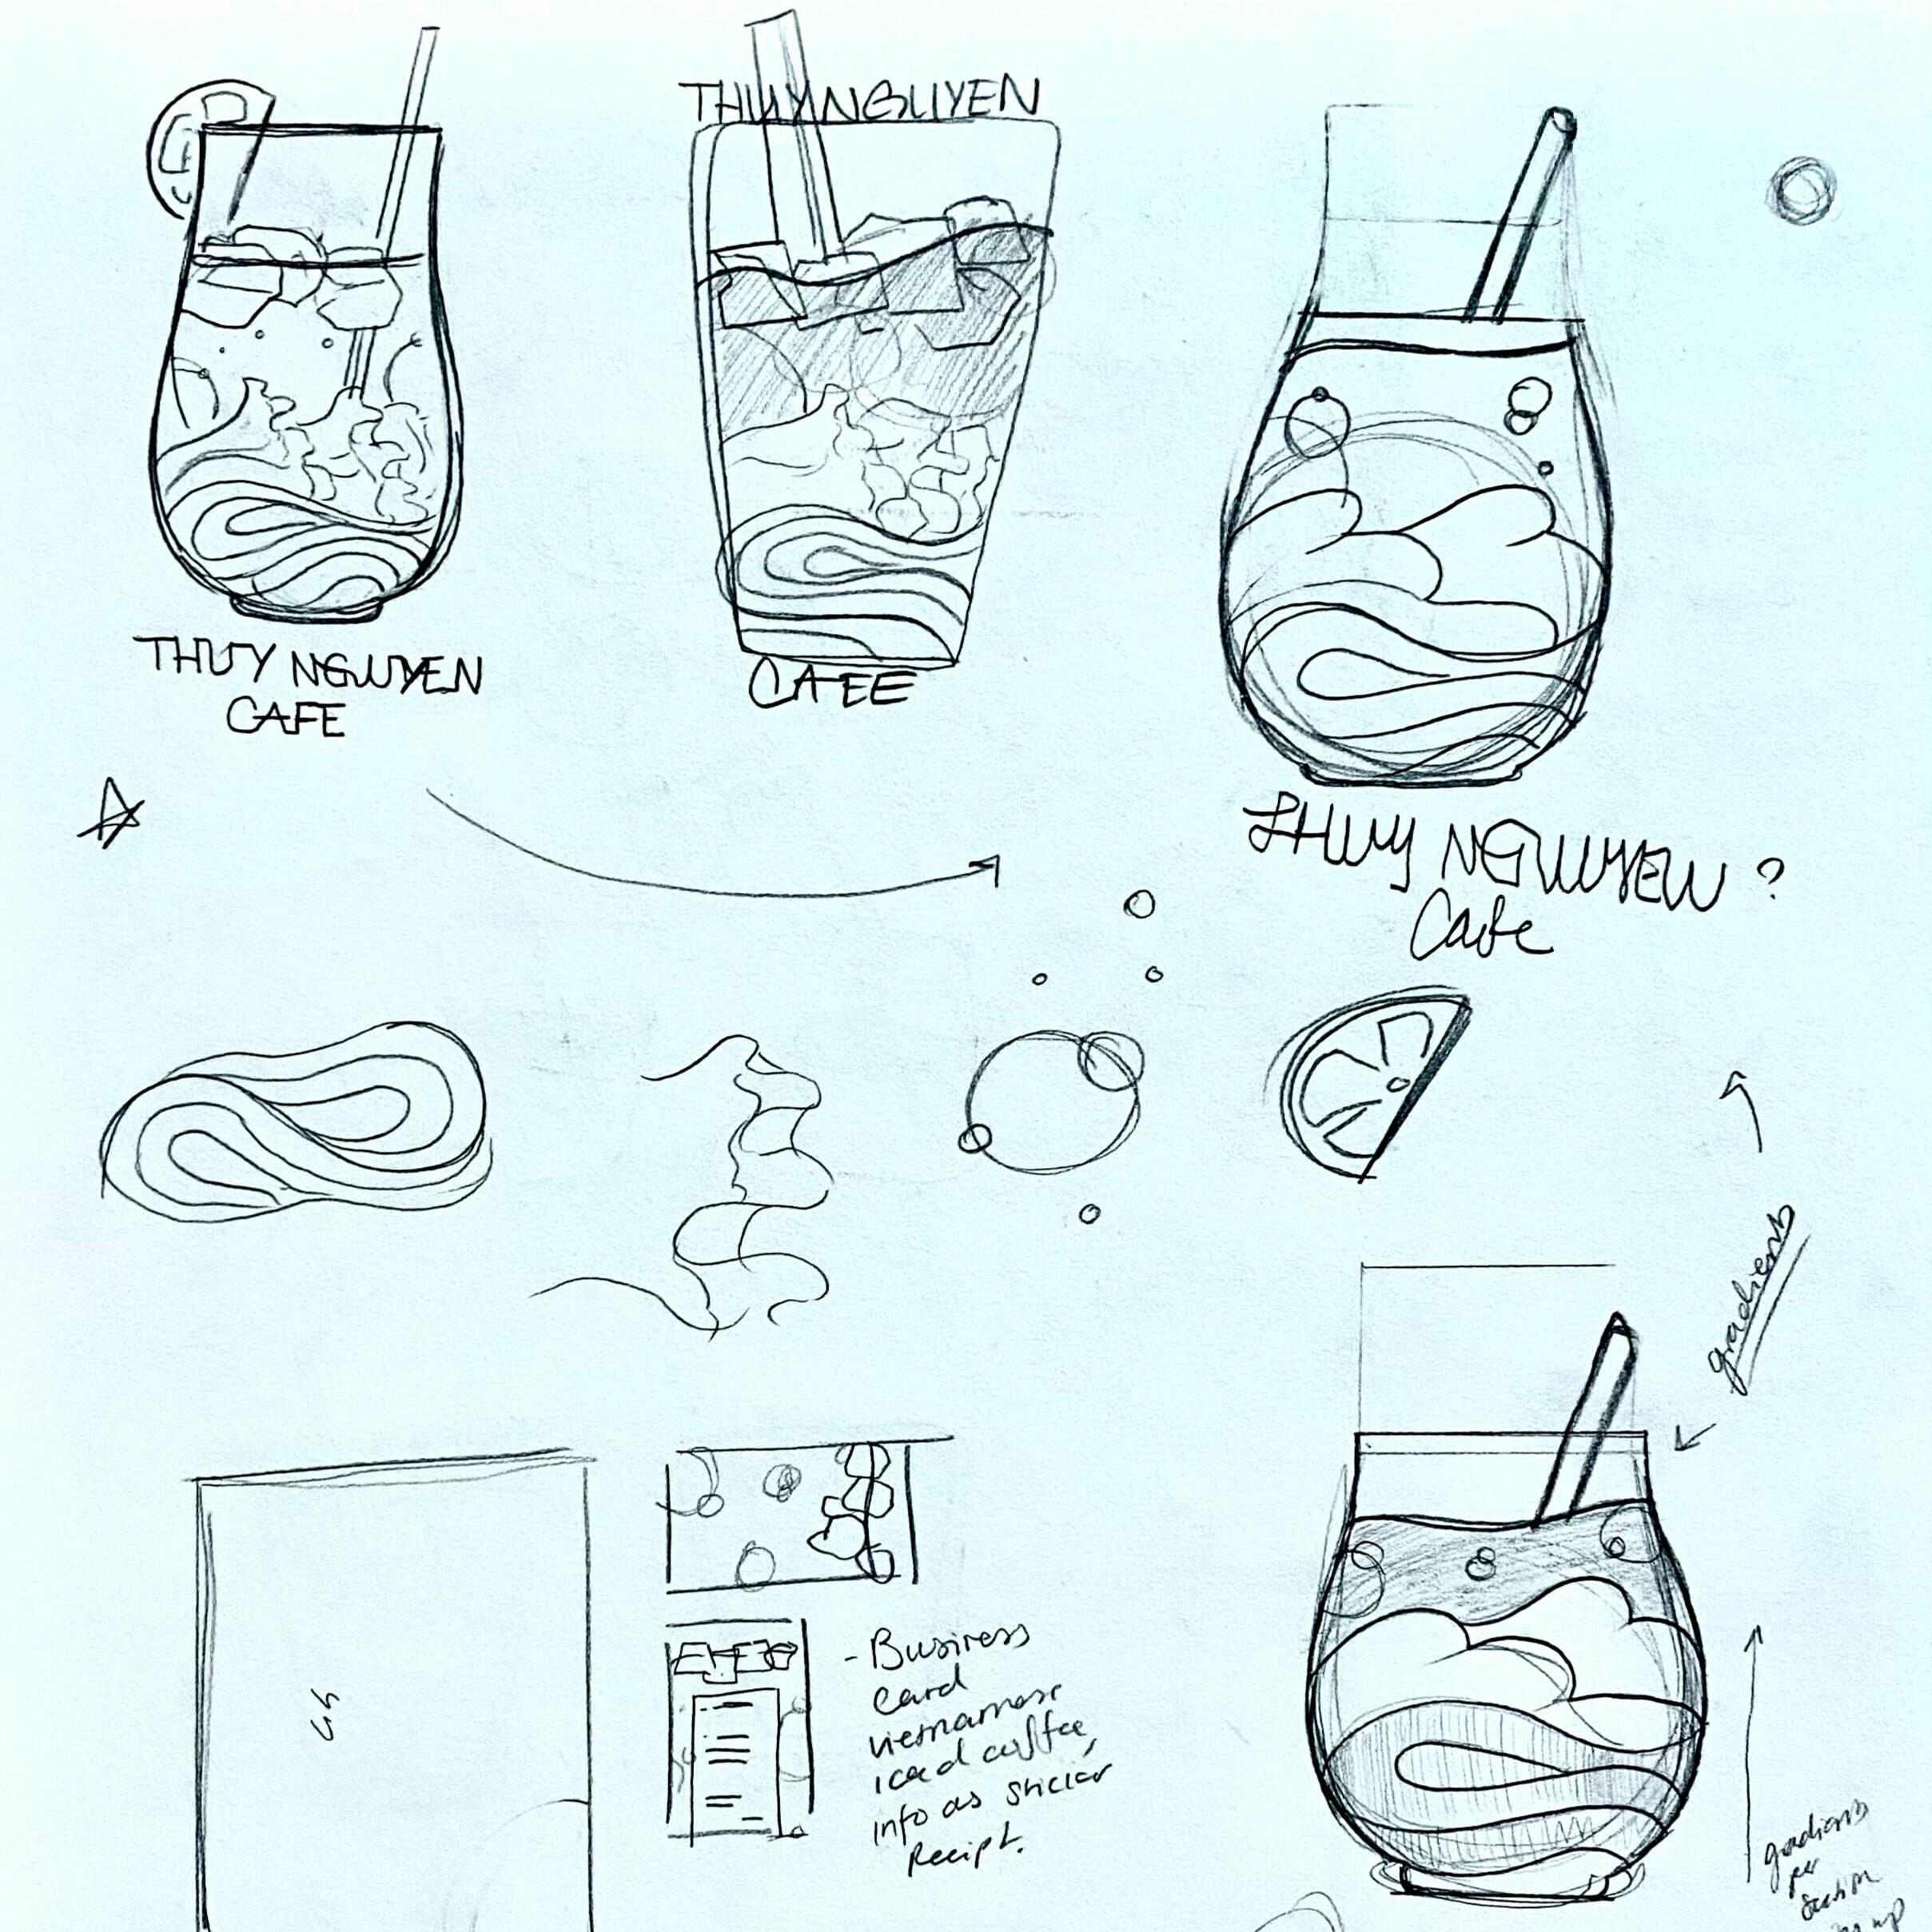 THUY NGUYEN
CAFE
THUY NGUYEN
CAFE
THUY NGUYEN ?
Cafe
gradients
- Business
card
vietnamese
iced coffee,
info as sticker
Recipt.
gradients
per
section
up